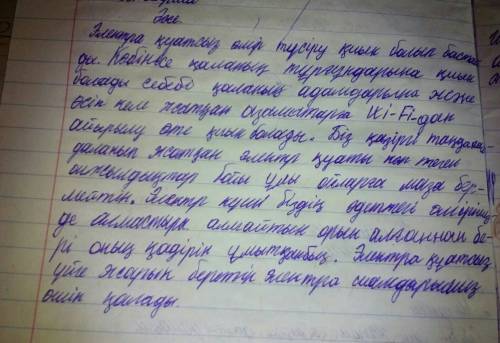 Эссе
Электр қуатсыз өмір түсіру қиын болып баста
ды. Көбінесе қаланың тұрғындарына қиын
болады себебі қаланың адамдарына және
өсіп келе жатқан азаматтарға Wi-Fi-дан
айырылу өте қиын болады. Біз қазіргі таңда пай-
даланып жатқан электр қуаты көп деген
жылдар бойы ұлы ойларға маза бер-
мейтін. Электр күші біздің әдеттегі өмірімiз
де алмастыра алмайтын орын алғаннан бе-
рі оның қадірін ұмытқанбыз. Электра қуатсыз
үйге жарық беретін электра шамдарымыз
өшіп қалады.